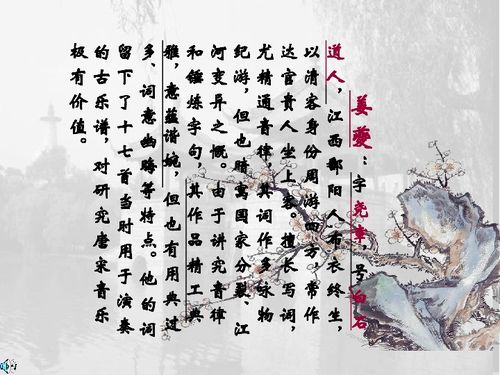 姜夔:字尧章,号白石
道人,江西鄱阳人布衣终生,
以清客身份周游四方。常作
达官贵人坐上客。擅长写词,
尤精通音律,其词作多咏物
纪游,但也暗寓国家分裂、江
河变异之慨。由于讲究音律
和锤炼字句,其作品精工典
雅,意蕴谐婉,但也有用典过
多、词意幽晦等特点。他的词
留下了十七首当时用于演奏
的古乐谱,对研究唐宋音乐
极有价值。